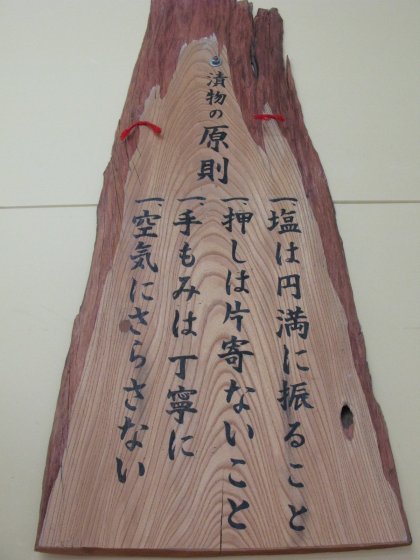 漬物の原則
一、塩は円満に振ること
一、押しは片寄ないこと
一、手もみは丁寧に
一、空気にさらさない